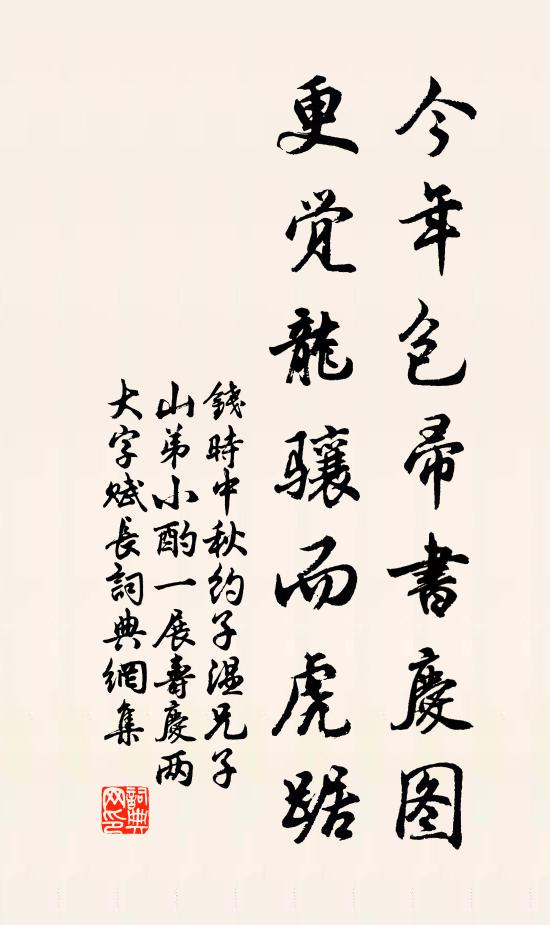 今年包帚書慶图
更觉龍驤而虎踞
錢時中秋約子温兄子
山弟小酌一展壽慶两
大字赋長詞典網集
詞典网印